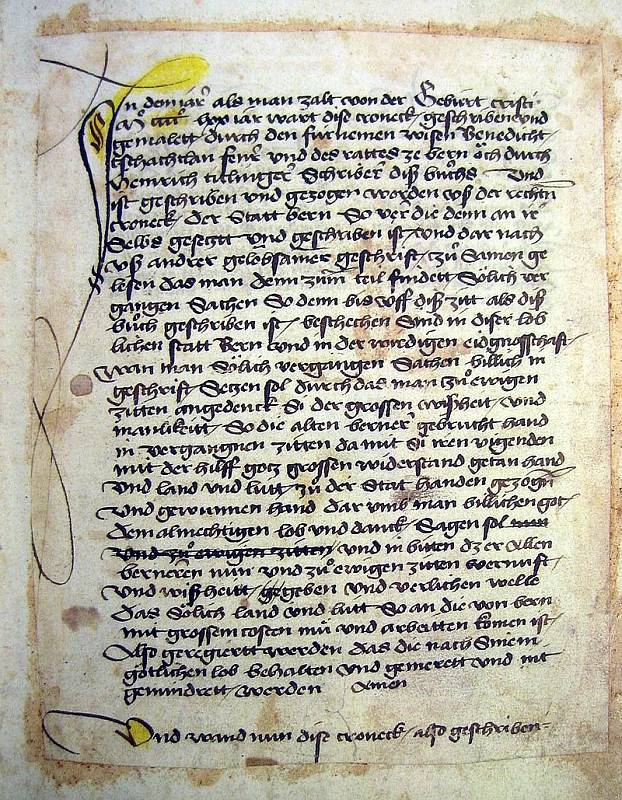 In dem iar als man zalt von der Gebürt cristi
lxx iar wart dise croneck geschriben und
gemalett durch den fürnemen wisen Benedicht
tschachtlan fenr und des rattes ze bern öch durch
Heinrich tittlinger Schriber diß büchs Und
ist geschriben und gezogen worden uß der rechtn
croneck der Statt bern So ver die denn an ir
Selbs gesetzt Und geschriben ist Und dar nach
uß andrer gelobsamer geschrift zů Samen ge
lesen das man denn zům teil findett Sölich ver
gangen Sachen So denn bis uff diß zitt als diß
bůch geschriben ist beschechen Sind in diser lob
lichen statt Bern Und in der wirdigen eidgnosschaft
Wan man Sölich vergangen Sachen billich in
geschrift Setzen sol durch das man zů ewigen
zitten angedenck Si der grossen wißheit Und
manlikeitt So die alten berner gebrucht hand
in vergangnen zitten da mit Si iren vigenden
mit der hilff gotz grossen widerstand getan hand
Und land und lütt zů der Stat handen gezogn
Und gewunnen hand dar umb man billichen got
dem almechtigen lob und danck Sagen sol nun
Und zů ewigen zitten und in bitten dz er Allen
bernern nun und zů ewigen zitten vernuft
Und wißheitt gegeben und verlichen welle
das Sölich land und lütt So an die von bern
mit grossem costen mü und arbeitten komen ist
Also geregiertt werden das die nach Sinem
götlichen lob behalten und gemerett und nit
gemindrett werden Amen
Und wand nun dise croneck also geschriben